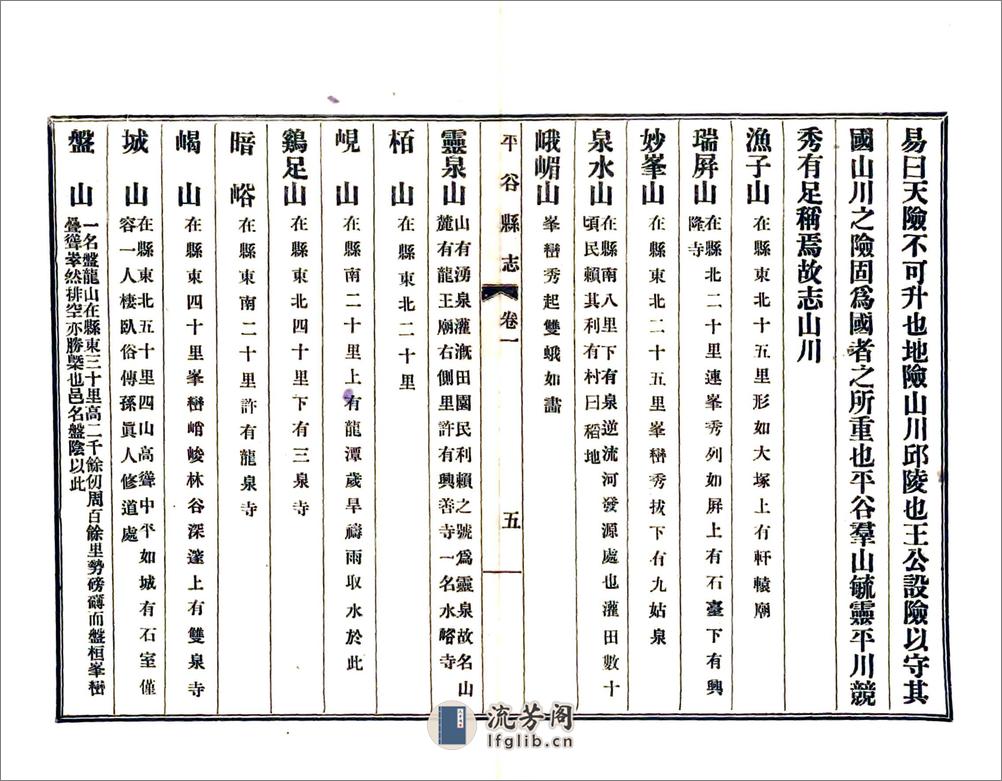 易曰天險不可升也地險山川邱陵也王公設險以守其
國山川之險固爲國者之所重也平谷羣山毓靈平川競
秀有足稱焉故志山川
漁子山 在縣東北十五里形如大塚上有軒轅廟
瑞屏山 在縣北二十里連峯秀列如屏上有石臺下有興
隆寺
妙峯山 在縣東北二十五里峯巒秀拔下有九姑泉
泉水山 在縣南八里下有泉逆流河發源處也灌田數十
頃民賴其利有村曰稻地
峨嵋山 峯巒秀起雙蛾如畵
平谷縣志 卷一 五
靈泉山 山有湧泉灌漑田園民利賴之號爲靈泉故名山
麓有龍王廟右側里許有興善寺一名水峪寺
栢山 在縣東北二十里
峴山 在縣南二十里上有龍潭歲旱禱雨取水於此
鷄足山 在縣東北四十里下有三泉寺
暗峪 在縣東南二十里許有龍泉寺
嵑山 在縣東四十里峯巒峭峻林谷深邃上有雙泉寺
城山 在縣東北五十里四山高聳中平如城有石室僅
容一人棲臥俗傳孫眞人修道處
盤山 一名盤龍山在縣東三十里高二千餘仞周百餘里勢磅礴而盤桓峯巒
疊聳拳然排空亦勝槩也邑名盤陰以此
流芳阁
lfglib.cn